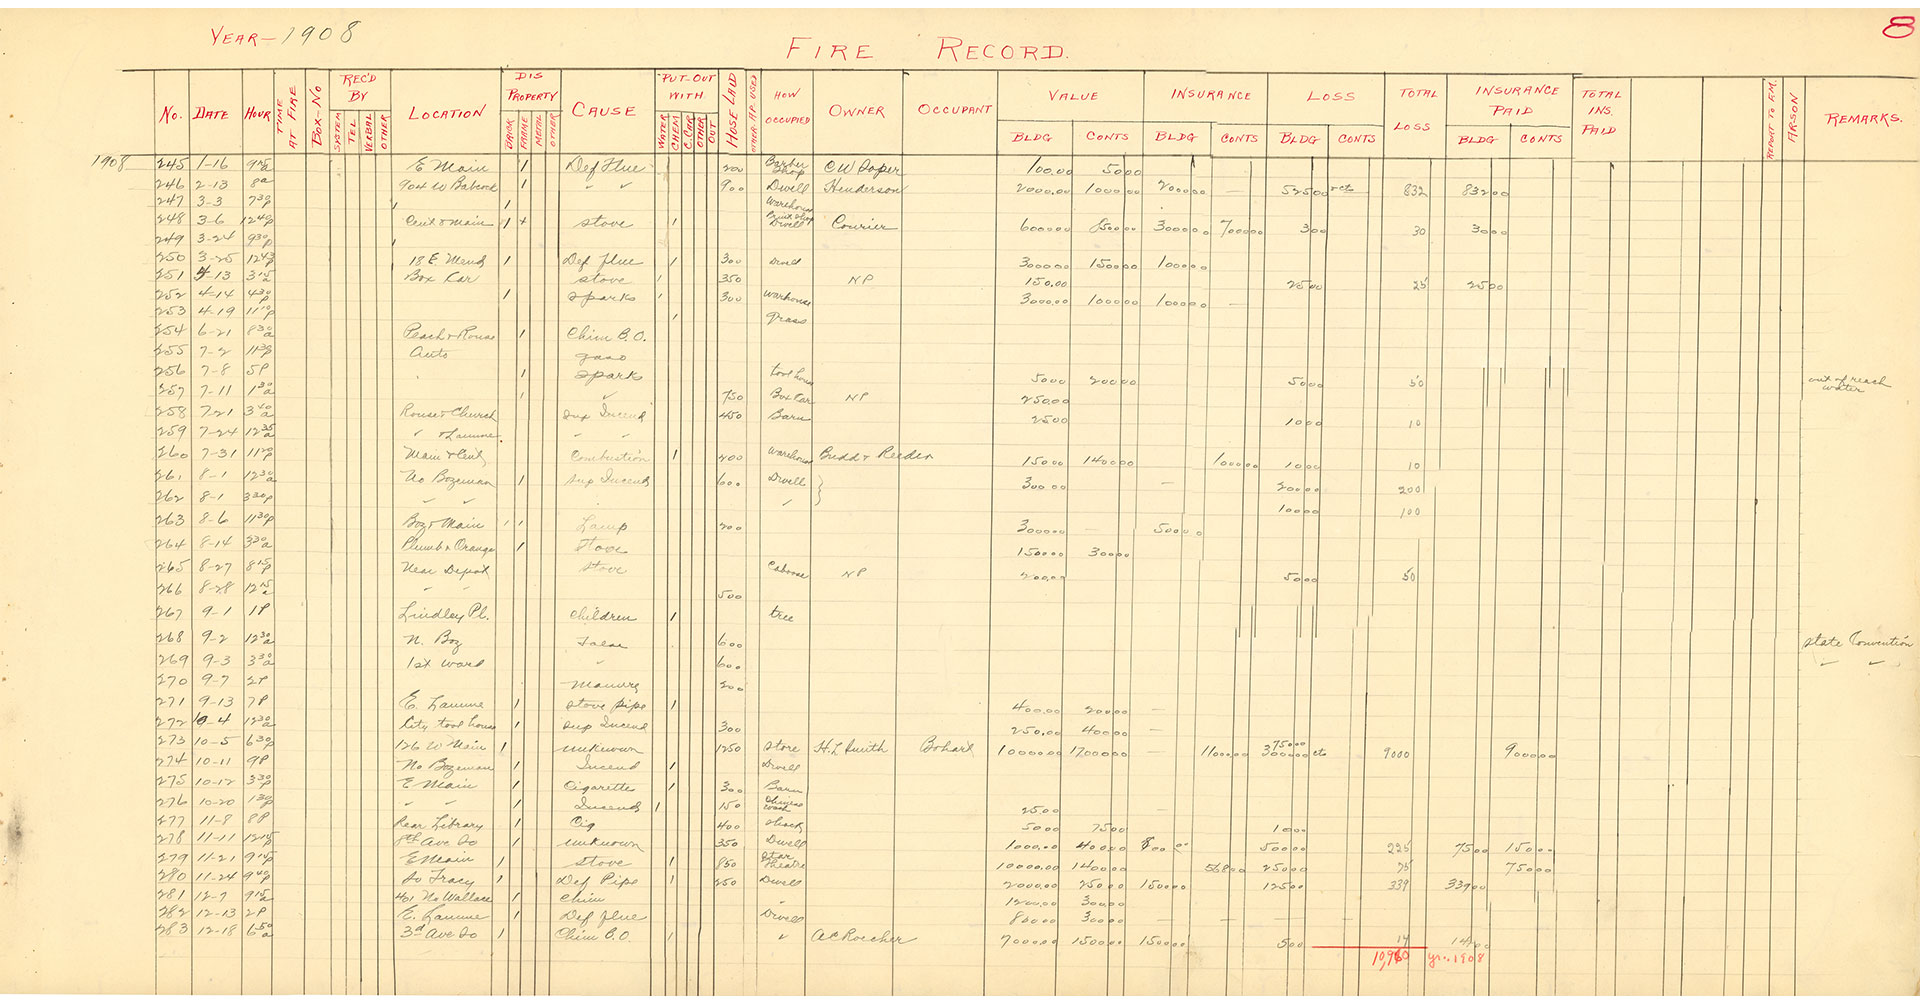 YEAR- 1908
FIRE RECORD.
8
No. DATE HOUR TIME AT FIRE BOX-No REC'D BY SYSTEM TEL VERBAL OTHER LOCATION DIS PROPERTY BRICK FRAME METAL OTHER CAUSE PUT-OUT WITH WATER CHEM OTHER OUT HOSE LAID OTHER AP. USED HOW OCCUPIED OWNER OCCUPANT VALUE BLDG CONTS INSURANCE BLDG CONTS LOSS BLDG CONTS TOTAL LOSS INSURANCE PAID BLDG CONTS TOTAL INS. PAID REPORT TO F.M. ARSON REMARKS.
1908 245 1-16 9 15 a E Main 1 Def Flue 200 Barber Shop 100.00 50.00
246 2-13 8a 904 W Babcock 1 " " 900 Dwell Henderson 2000.00 1000.00 2000.00 - 525.00 832 832.00
247 3-3 7 30 p 1 Warehouse
248 3-6 12 40 p Cent & Main 1 + stove 1 Dwell Courier 6000.00 8500.00 3000.00 7000.00 30 30.00
249 3-24 9 30 p
250 3-25 12 43 p 18 E Mend 1 Def Flue 1 300 Dwell 3000.00 1500.00 1000.00
251 4-13 3 15 a Box Car stove 1 350 NP 150.00 25.00 25 25.00
252 4-14 4 30 p 1 sparks 1 300 warhouse 3000.00 1000.00 1000.00 -
253 4-19 11 10 p 1 grass
254 6-21 8 30 a Peach & Rouse 1 Chim B.O.
255 7-2 11 30 p Auto gaso
256 7-8 5P 1 sparks tool house 50.00 200.00 50.00 50 out of reach water
257 7-11 1 30 a 1 " 750 Box Car NP 250.00
258 7-21 3 40 a Rouse & Church sup Incend 450 Barn 25.00 10.00 10
259 7-24 12 35 a " & Lamme " "
260 7-31 11 20 p Main & Cent Combustion 1 200 Warehouse Budd & Reeder 150.00 1400.00 1000.00 10.00 10
261 8-1 12 30 a No Bozeman 1 sup Incend 600 Dwell 300.00 - 200.00 200
262 8-1 3 30 p " " " 100.00 100
263 8-6 11 30 p Boz & Main 1 1 Lamp 200 3000.00 - 500.00
264 8-14 3 30 a Plumb & Orange 1 stove 1500.00 300.00
265 8-27 8 15 p Near Depot stove Caboose NP 200.00 50.00 50
266 8-28 12 15 a " " 500
267 9-1 1P Lindley Pl. children 1 tree
268 9-2 12 30 a N. Boz False 600 State Convention
269 9-3 3 30 a 1st ward " 600 " "
270 9-7 2P Manure 200
271 9-13 7P E. Lamme 1 stove pipe 1 400.00 200.00 -
272 10-4 12 30 a City tool house 1 sup Incend 300 250.00 400.00
273 10-5 6 30 p 126 W Main 1 unknown 1250 store H.L Smith Bohart 10000.00 17000.00 - 11000.00 9000 9000.00
274 10-11 9P No Bozeman 1 Incend 1 Dwell
275 10-12 3 30 p E Main 1 Cigarette 1 300 Barn
276 10-20 1 30 p " " 1 Incend 1 150 Chinese wash 25.00
277 11-8 8P Rear Library 1 Cig 400 shack 50.00 75.00 10.00
278 11-11 12 15 p 8th Ave So 1 unknown 350 Dwell 1000.00 400.00 800.00 500.00 225 75.00 150.00
279 11-21 9 15 p E Main 1 stove 1 850 Star Theatre 10000.00 1400.00 568.00 250.00 75 75.00
280 11-24 9 40 p So Tracy 1 Def Pipe 1 250 Dwell 2000.00 250.00 1500.00 125.00 339 339.00
281 12-7 9 15 a 401 No Wallace 1 Chim " 1200.00 300.00
282 12-13 2P E. Lamme 1 Def flue Dwell 800.00 300.00 - - - -
283 12-18 6 50 a 3d Ave So 1 Chim B.O. 1 " 7000.00 1500.00 1500.00 5.00 14 14.00
10,960 yr. 1908